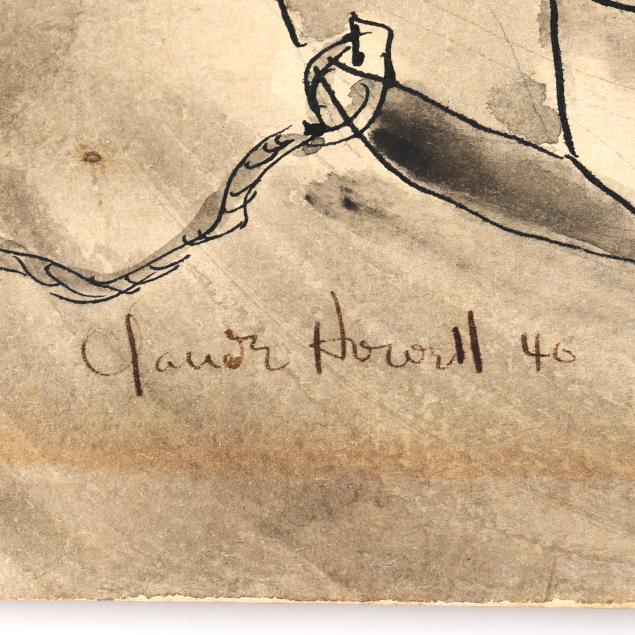 Claude Howell 40